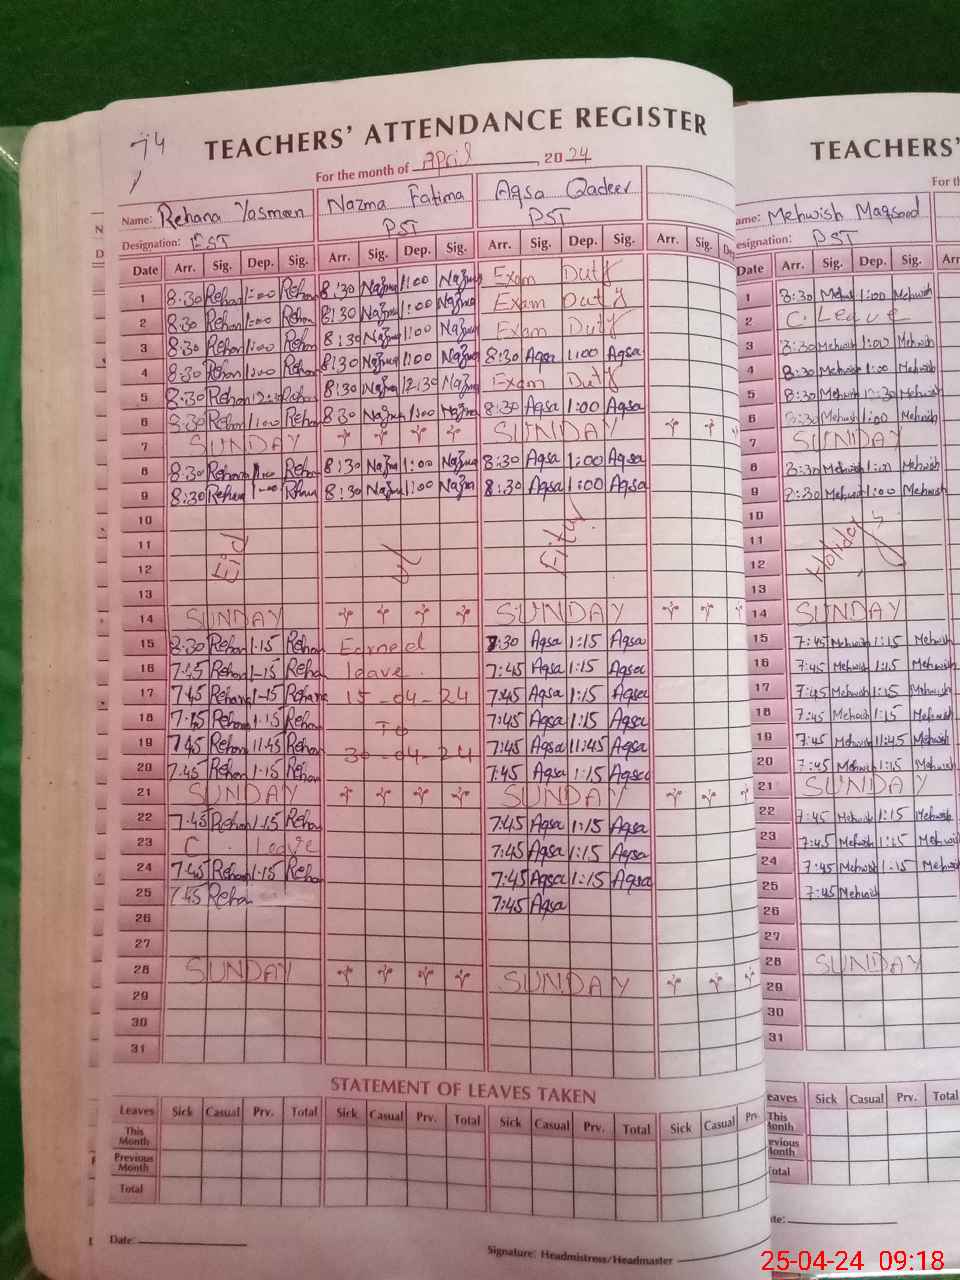 74
TEACHERS' ATTENDANCE REGISTER
For the month of April 2024
Name: Rehana Yasmeen Nazma Fatima Aqsa Qadeer
Designation: EST PST PST
Date Arr. Sig. Dep. Sig. Arr. Sig. Dep. Sig. Arr. Sig. Dep. Sig. Arr. Sig. Dep
1 8:30 Rehan 1:00 Rehan 8:30 Nazma 1:00 Nazma Exam Duty
2 8:30 Rehan 1:00 Rehan 8:30 Nazma 1:00 Nazma Exam Duty
3 8:30 Rehan 1:00 Rehan 8:30 Nazma 1:00 Nazma Exam Duty
4 8:30 Rehan 1:00 Rehan 8:30 Nazma 1:00 Nazma 8:30 Aqsa 1:00 Aqsa
5 8:30 Rehan 12:30 Rehan 8:30 Nazma 12:30 Nazma Exam Duty
6 8:30 Rehan 1:00 Rehan 8:30 Nazma 1:00 Nazma 8:30 Aqsa 1:00 Aqsa
7 SUNDAY SUNDAY
8 8:30 Rehana 1:00 Rehan 8:30 Nazma 1:00 Nazma 8:30 Aqsa 1:00 Aqsa
9 8:30 Rehan 1:00 Rehan 8:30 Nazma 1:00 Nazma 8:30 Aqsa 1:00 Aqsa
10
11
12 Eid ul Fitur
13
14 SUNDAY SUNDAY
15 8:30 Rehan 1-15 Rehan Earned 7:30 Aqsa 1:15 Aqsa
16 7:45 Rehan 1-15 Rehan leave 7:45 Aqsa 1:15 Aqsa
17 7:45 Rehana 1-15 Rehana 15-04-24 7:45 Aqsa 1:15 Aqsa
18 7:45 Rehan 1:15 Rehan To 7:45 Aqsa 1:15 Aqsa
19 7:45 Rehan 11:45 Rehan 30-04-24 7:45 Aqsa 11:45 Aqsa
20 7:45 Rehan 1-15 Rehan 7:45 Aqsa 1:15 Aqsa
21 SUNDAY SUNDAY
22 7:45 Rehan 1:15 Rehan 7:45 Aqsa 1:15 Aqsa
23 C. Leave 7:45 Aqsa 1:15 Aqsa
24 7:45 Rehan 1-15 Rehan 7:45 Aqsa 1:15 Aqsa
25 7:45 Rehan 7:45 Aqsa
26
27
28 SUNDAY SUNDAY
29
30
31
STATEMENT OF LEAVES TAKEN
Leaves Sick Casual Prv. Total Sick Casual Prv. Total Sick Casual Prv. Total Sick Casual Prv.
This Month
Previous Month
Total
Date:
Signature: Headmistress/Headmaster
TEACHERS'
For th
ame: Mehwish Maqsood
esignation: PST
Date Arr. Sig. Dep. Sig. Arr
1 8:30 Mehwish 1:00 Mehwish
2 C. Leave
3 8:30 Mehwish 1:00 Mehwish
4 8:30 Mehwish 1:00 Mehwish
5 8:30 Mehwish 12:30 Mehwish
6 8:30 Mehwish 1:00 Mehwish
7 SUNDAY
8 8:30 Mehwish 1:00 Mehwish
9 8:30 Mehwish 1:00 Mehwish
10
11
12 Holidays
13
14 SUNDAY
15 7:45 Mehwish 1:15 Mehwish
16 7:45 Mehwish 1:15 Mehwish
17 7:45 Mehwish 1:15 Mehwish
18 7:45 Mehwish 1:15 Mehwish
19 7:45 Mehwish 11:45 Mehwish
20 7:45 Mehwish 1:15 Mehwish
21 SUNDAY
22 7:45 Mehwish 1:15 Mehwish
23 7:45 Mehwish 1:15 Mehwish
24 7:45 Mehwish 1:15 Mehwish
25 7:45 Mehwish
26
27
28 SUNDAY
29
30
31
eaves Sick Casual Prv. Total
This Month
evious Month
otal
te:
25-04-24 09:18